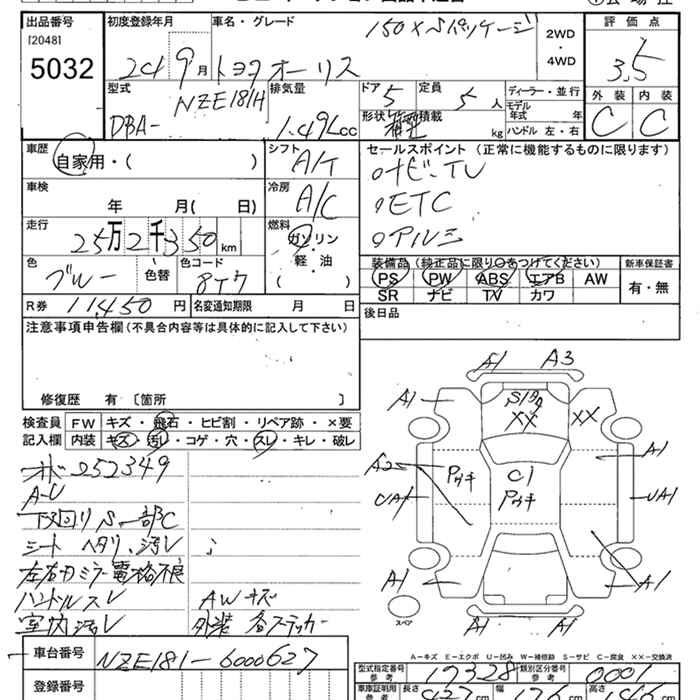 出品番号
[2048]
5032
初度登録年月
24 9月
車名・グレード
150X Sパッケージ
トヨタ オーリス
2WD
・
4WD
評価点
3.5
外装 内装
C C
型式
DBA-
NZE181H
排気量
1.49L cc
ドア 5
定員 5人
形状
積載
kg
ディーラー・並行
モデル
年式 年
ハンドル 左・右
車歴
自家用・( )
シフト
A/T
車検
年 月( 日)
冷房
A/C
走行
25万2千350km
燃料
ガソリン
・
軽・油
( )
色
ブルー
色替
色コード
8T7
R券 11,450円
名変通知期限 月 日
セールスポイント(正常に機能するものに限ります)
ナビ・TV
ETC
アルミ
装備品(純正品に限り○をつけてください)
PS PW ABS エアB AW
SR ナビ TV カワ
新車保証書
有・無
後日品
注意事項申告欄(不具合内容等は具体的に記入して下さい)
修復歴 有〔箇所 〕
検査員
記入欄
FW キズ・飛石・ヒビ割・リペア跡・×要
内装 キズ・汚レ・コゲ・穴・スレ・キレ・破レ
オド 252349
A-U
下回りS一部C
シート ヘタリ、汚レ
左右ドアミラー電格不良
ハンドルスレ
AWキズ
室内汚レ
外装 各ステッカー
A1 A3
A1
S1飛
XX XX
A1
A2
Pタキ
C1
Pタキ
UA1
UA1
A1
A1
A1 A1
スペア
A－キズ E－エクボ U－凹み W－補修跡 S－サビ C－腐食 XX－交換済
車台番号 NZE181-6000627
登録番号
型式指定番号
参考
17328
類別区分番号
参考
0001
車庫証明用
参考
長さ
幅
高さ